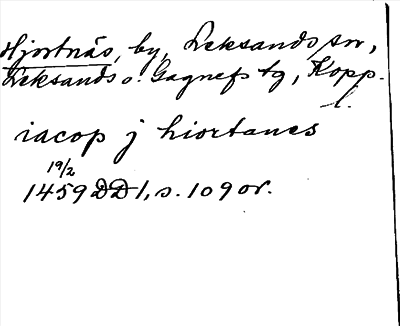 Hjortnäs, by, Leksands sn,
Leksands o. Gagnefs tg, Kopp.
l.
iacop j hiortanes
19/2
1459 DD 1, s. 109 or.